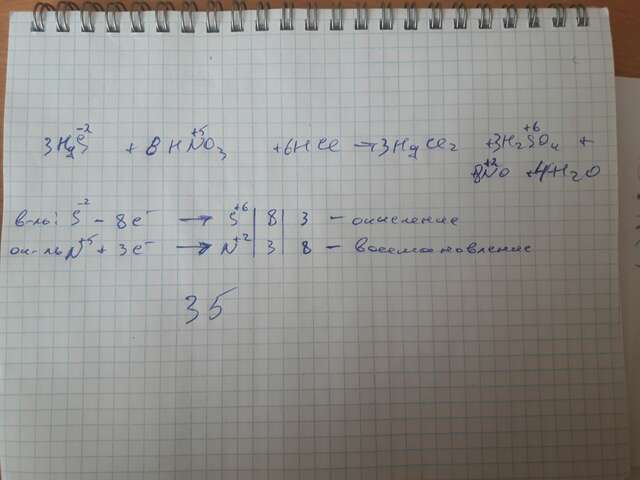 3HgS⁻² + 8HN⁺⁵O₃ + 6HCl → 3HgCl₂ + 3H₂S⁺⁶O₄ +
8N⁺²O + 4H₂O
в-ль: S⁻² - 8e⁻ → S⁺⁶ | 8 | 3 - окисление
ок-ль N⁺⁵ + 3e⁻ → N⁺² | 3 | 8 - восстановление
35